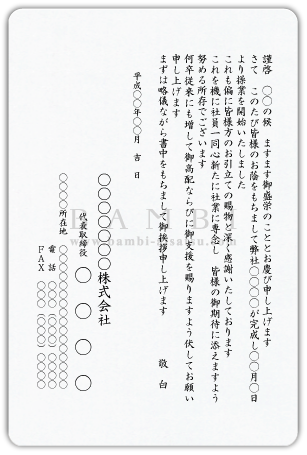 謹啓　〇〇の候　ますます御盛栄のこととお慶び申し上げます
さて　このたび皆様のお蔭をもちまして弊社〇〇〇〇が完成し〇〇月〇日
より操業を開始いたしました
これも偏に皆様方のお引立ての賜物と深く感謝いたしております
これを機に社員一同心新たに社業に専念し　皆様の御期待に添えますよう
努める所存でございます
何卒従来にも増して御高配ならびに御支援を賜りますよう伏してお願い
申し上げます
まずは略儀ながら書中をもちまして御挨拶申し上げます
敬　白
平成〇〇年〇〇月　吉　日
〇〇〇〇〇〇株式会社
代表取締役　〇　〇　〇　〇
〇〇〇〇〇〇
所在地　〇〇〇〇〇〇〇〇〇〇〇
電　話　〇〇〇〇〇〇〇〇〇〇
ＦＡＸ　〇〇〇〇〇〇〇〇〇〇
BANBI
www.bambi-insatsu.com